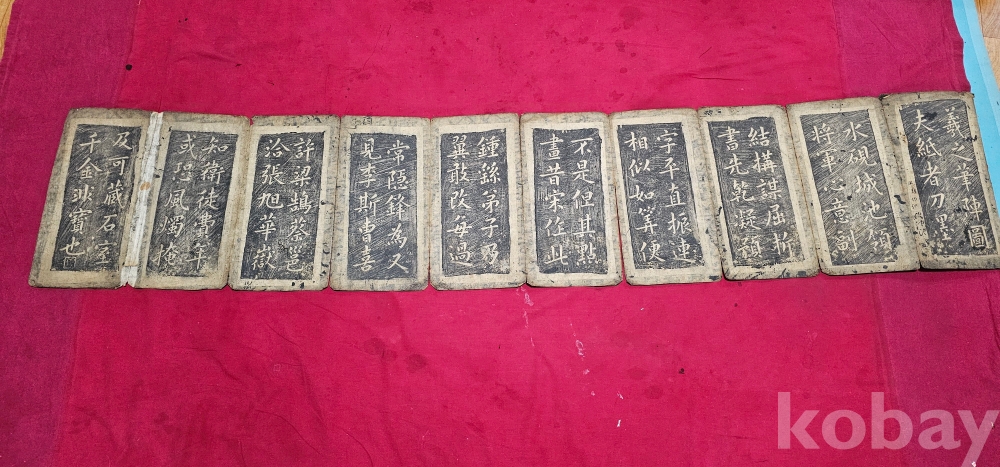 羲之筆陣圖
夫紙者刀
水硯城池領
將軍心意副
結構謀屈折
書先乾凝
字平直振連
相似如筭便
不是但其點
畫昔宋任此
鍾繇弟子乃
翼敢改每過
常隱鋒為又
見李斯曹喜
許梁鵠蔡邕
洽張旭華嶽
如徒費年
或恐風燭掩
及可藏石室
千金寶也
kobay